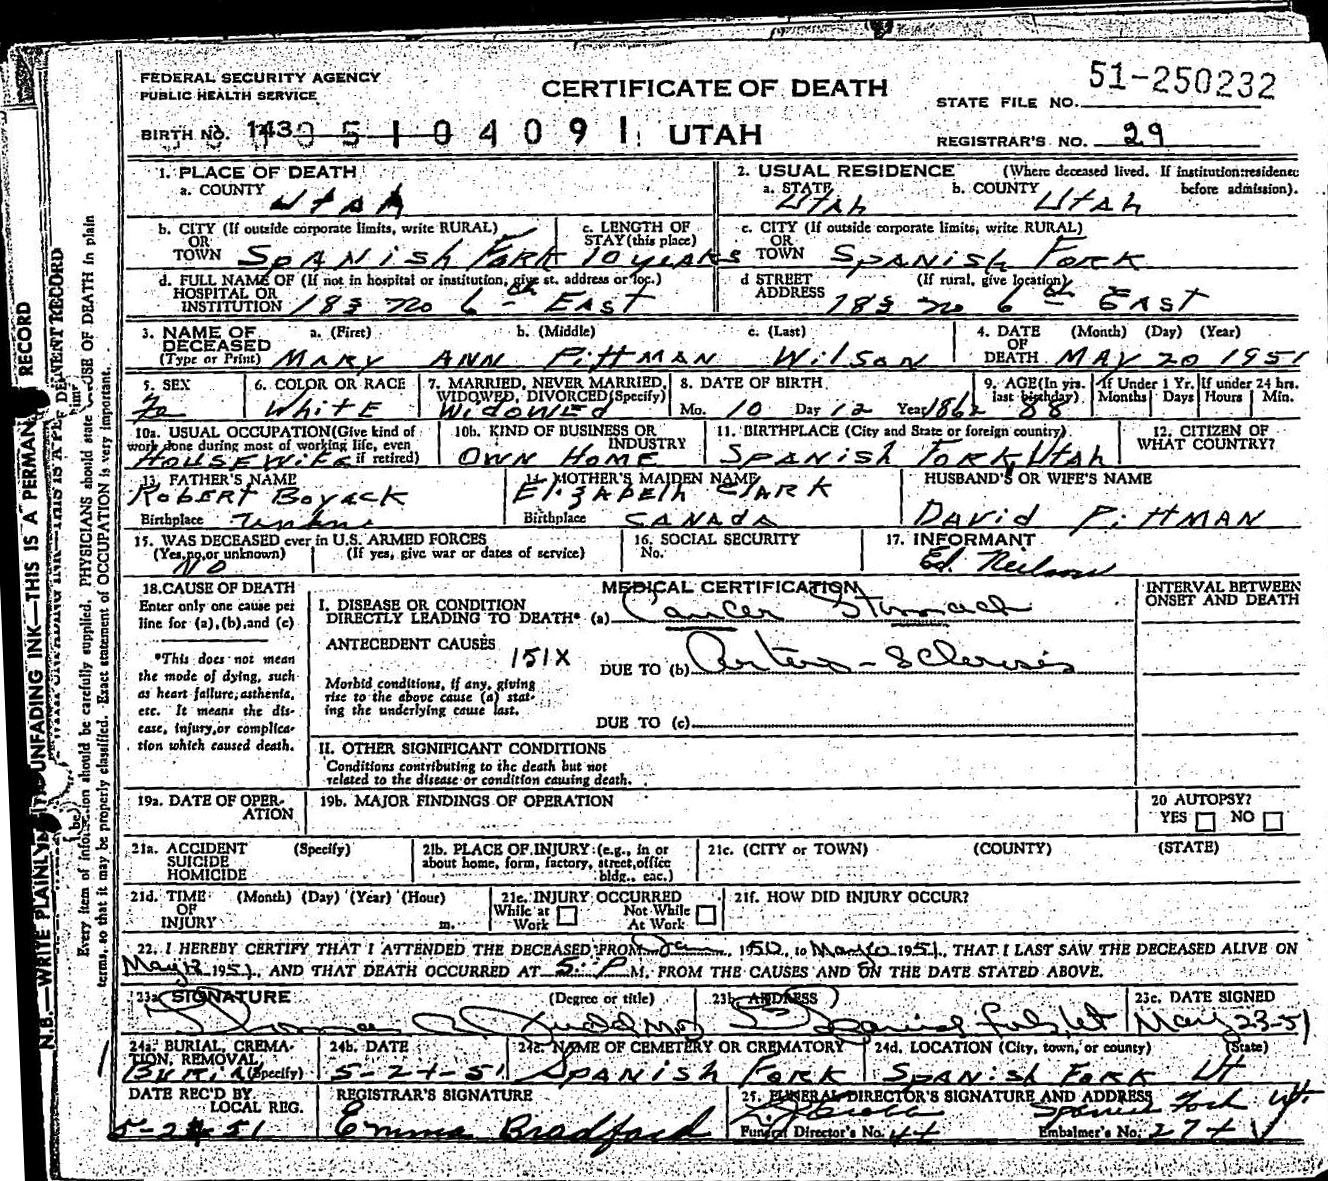 FEDERAL SECURITY AGENCY
PUBLIC HEALTH SERVICE
CERTIFICATE OF DEATH
STATE FILE NO. 51-250232
BIRTH NO. 143 0 5 1 0 4 0 9 1 UTAH
REGISTRAR'S NO. 29
1. PLACE OF DEATH
a. COUNTY
UtAh
2. USUAL RESIDENCE (Where deceased lived. If institution: residence before admission).
a. STATE Utah b. COUNTY UtAh
b. CITY (If outside corporate limits, write RURAL)
OR
TOWN SpANish Fork
c. LENGTH OF STAY (this place)
10 years
c. CITY (If outside corporate limits, write RURAL)
OR
TOWN SpANish Fork
d. FULL NAME OF (If not in hospital or institution, give st. address or loc.)
HOSPITAL OR
INSTITUTION 183 no 6th EAST
d STREET ADDRESS (If rural, give location)
183 no 6th EAST
3. NAME OF DECEASED
(Type or Print)
a. (First) b. (Middle) c. (Last)
MARY ANN PittMAN WilsoN
4. DATE OF DEATH (Month) (Day) (Year)
MAY 20 1951
5. SEX
Fe
6. COLOR OR RACE
White
7. MARRIED, NEVER MARRIED, WIDOWED, DIVORCED (Specify)
WidowEd
8. DATE OF BIRTH
Mo. 10 Day 12 Year 1862
9. AGE (In yrs. last birthday)
88
If Under 1 Yr. Months Days
If under 24 hrs. Hours Min.
10a. USUAL OCCUPATION (Give kind of work done during most of working life, even if retired)
HOUSEWIFE
10b. KIND OF BUSINESS OR INDUSTRY
OWN HOME
11. BIRTHPLACE (City and State or foreign country)
SpANish Fork, Utah
12. CITIZEN OF WHAT COUNTRY?
13. FATHER'S NAME
RobERt BoyAck
Birthplace
14. MOTHER'S MAIDEN NAME
ElizAbeth ClARK
Birthplace CANAdA
HUSBAND'S OR WIFE'S NAME
DAVid PittMAN
15. WAS DECEASED ever in U.S. ARMED FORCES
(Yes, no, or unknown) (If yes, give war or dates of service)
NO
16. SOCIAL SECURITY No.
17. INFORMANT
Ed. Neilson
18. CAUSE OF DEATH
Enter only one cause per line for (a), (b), and (c)
*This does not mean the mode of dying, such as heart failure, asthenia, etc. It means the disease, injury, or complication which caused death.
MEDICAL CERTIFICATION
I. DISEASE OR CONDITION
DIRECTLY LEADING TO DEATH* (a) Cancer Stomach
ANTECEDENT CAUSES
151X
DUE TO (b) Arterio-Sclerosis
Morbid conditions, if any, giving rise to the above cause (a) stating the underlying cause last.
DUE TO (c)
II. OTHER SIGNIFICANT CONDITIONS
Conditions contributing to the death but not related to the disease or condition causing death.
INTERVAL BETWEEN ONSET AND DEATH
19a. DATE OF OPERATION
19b. MAJOR FINDINGS OF OPERATION
20 AUTOPSY?
YES NO
21a. ACCIDENT (Specify)
SUICIDE
HOMICIDE
21b. PLACE OF INJURY (e.g., in or about home, form, factory, street, office bldg., eac.)
21c. (CITY or TOWN) (COUNTY) (STATE)
21d. TIME OF INJURY (Month) (Day) (Year) (Hour) m.
21e. INJURY OCCURRED
While at Work Not While At Work
21f. HOW DID INJURY OCCUR?
22. I HEREBY CERTIFY THAT I ATTENDED THE DECEASED FROM Jan 1950, to May 20 1951, THAT I LAST SAW THE DECEASED ALIVE ON
May 1951, AND THAT DEATH OCCURRED AT 5. P M. FROM THE CAUSES AND ON THE DATE STATED ABOVE.
23a. SIGNATURE (Degree or title)
23b. ADDRESS
Spanish Fork Ut
23c. DATE SIGNED
May 23-51
24a. BURIAL, CREMATION, REMOVAL (Specify)
BURIAl
24b. DATE
24c. NAME OF CEMETERY OR CREMATORY
SpANish Fork
24d. LOCATION (City, town, or county) (State)
SpANish Fork Ut
DATE REC'D BY LOCAL REG.
REGISTRAR'S SIGNATURE
Emma Bradford
25. FUNERAL DIRECTOR'S SIGNATURE AND ADDRESS
Spanish Fork Ut.
Funeral Director's No. 44 Embalmer's No. 274
N.B.—WRITE PLAINLY UNFADING INK—THIS IS A PERMANENT RECORD
Every item of information should be carefully supplied. PHYSICIANS should state CAUSE OF DEATH in plain
terms, so that it may be properly classified. Exact statement of OCCUPATION is very important.